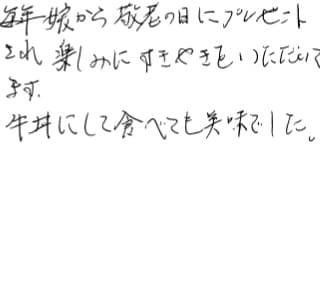 毎年娘から敬老の日にプレゼント
され 楽しみにすきやきをいただいて
ます.
牛丼にして食べても美味でした。